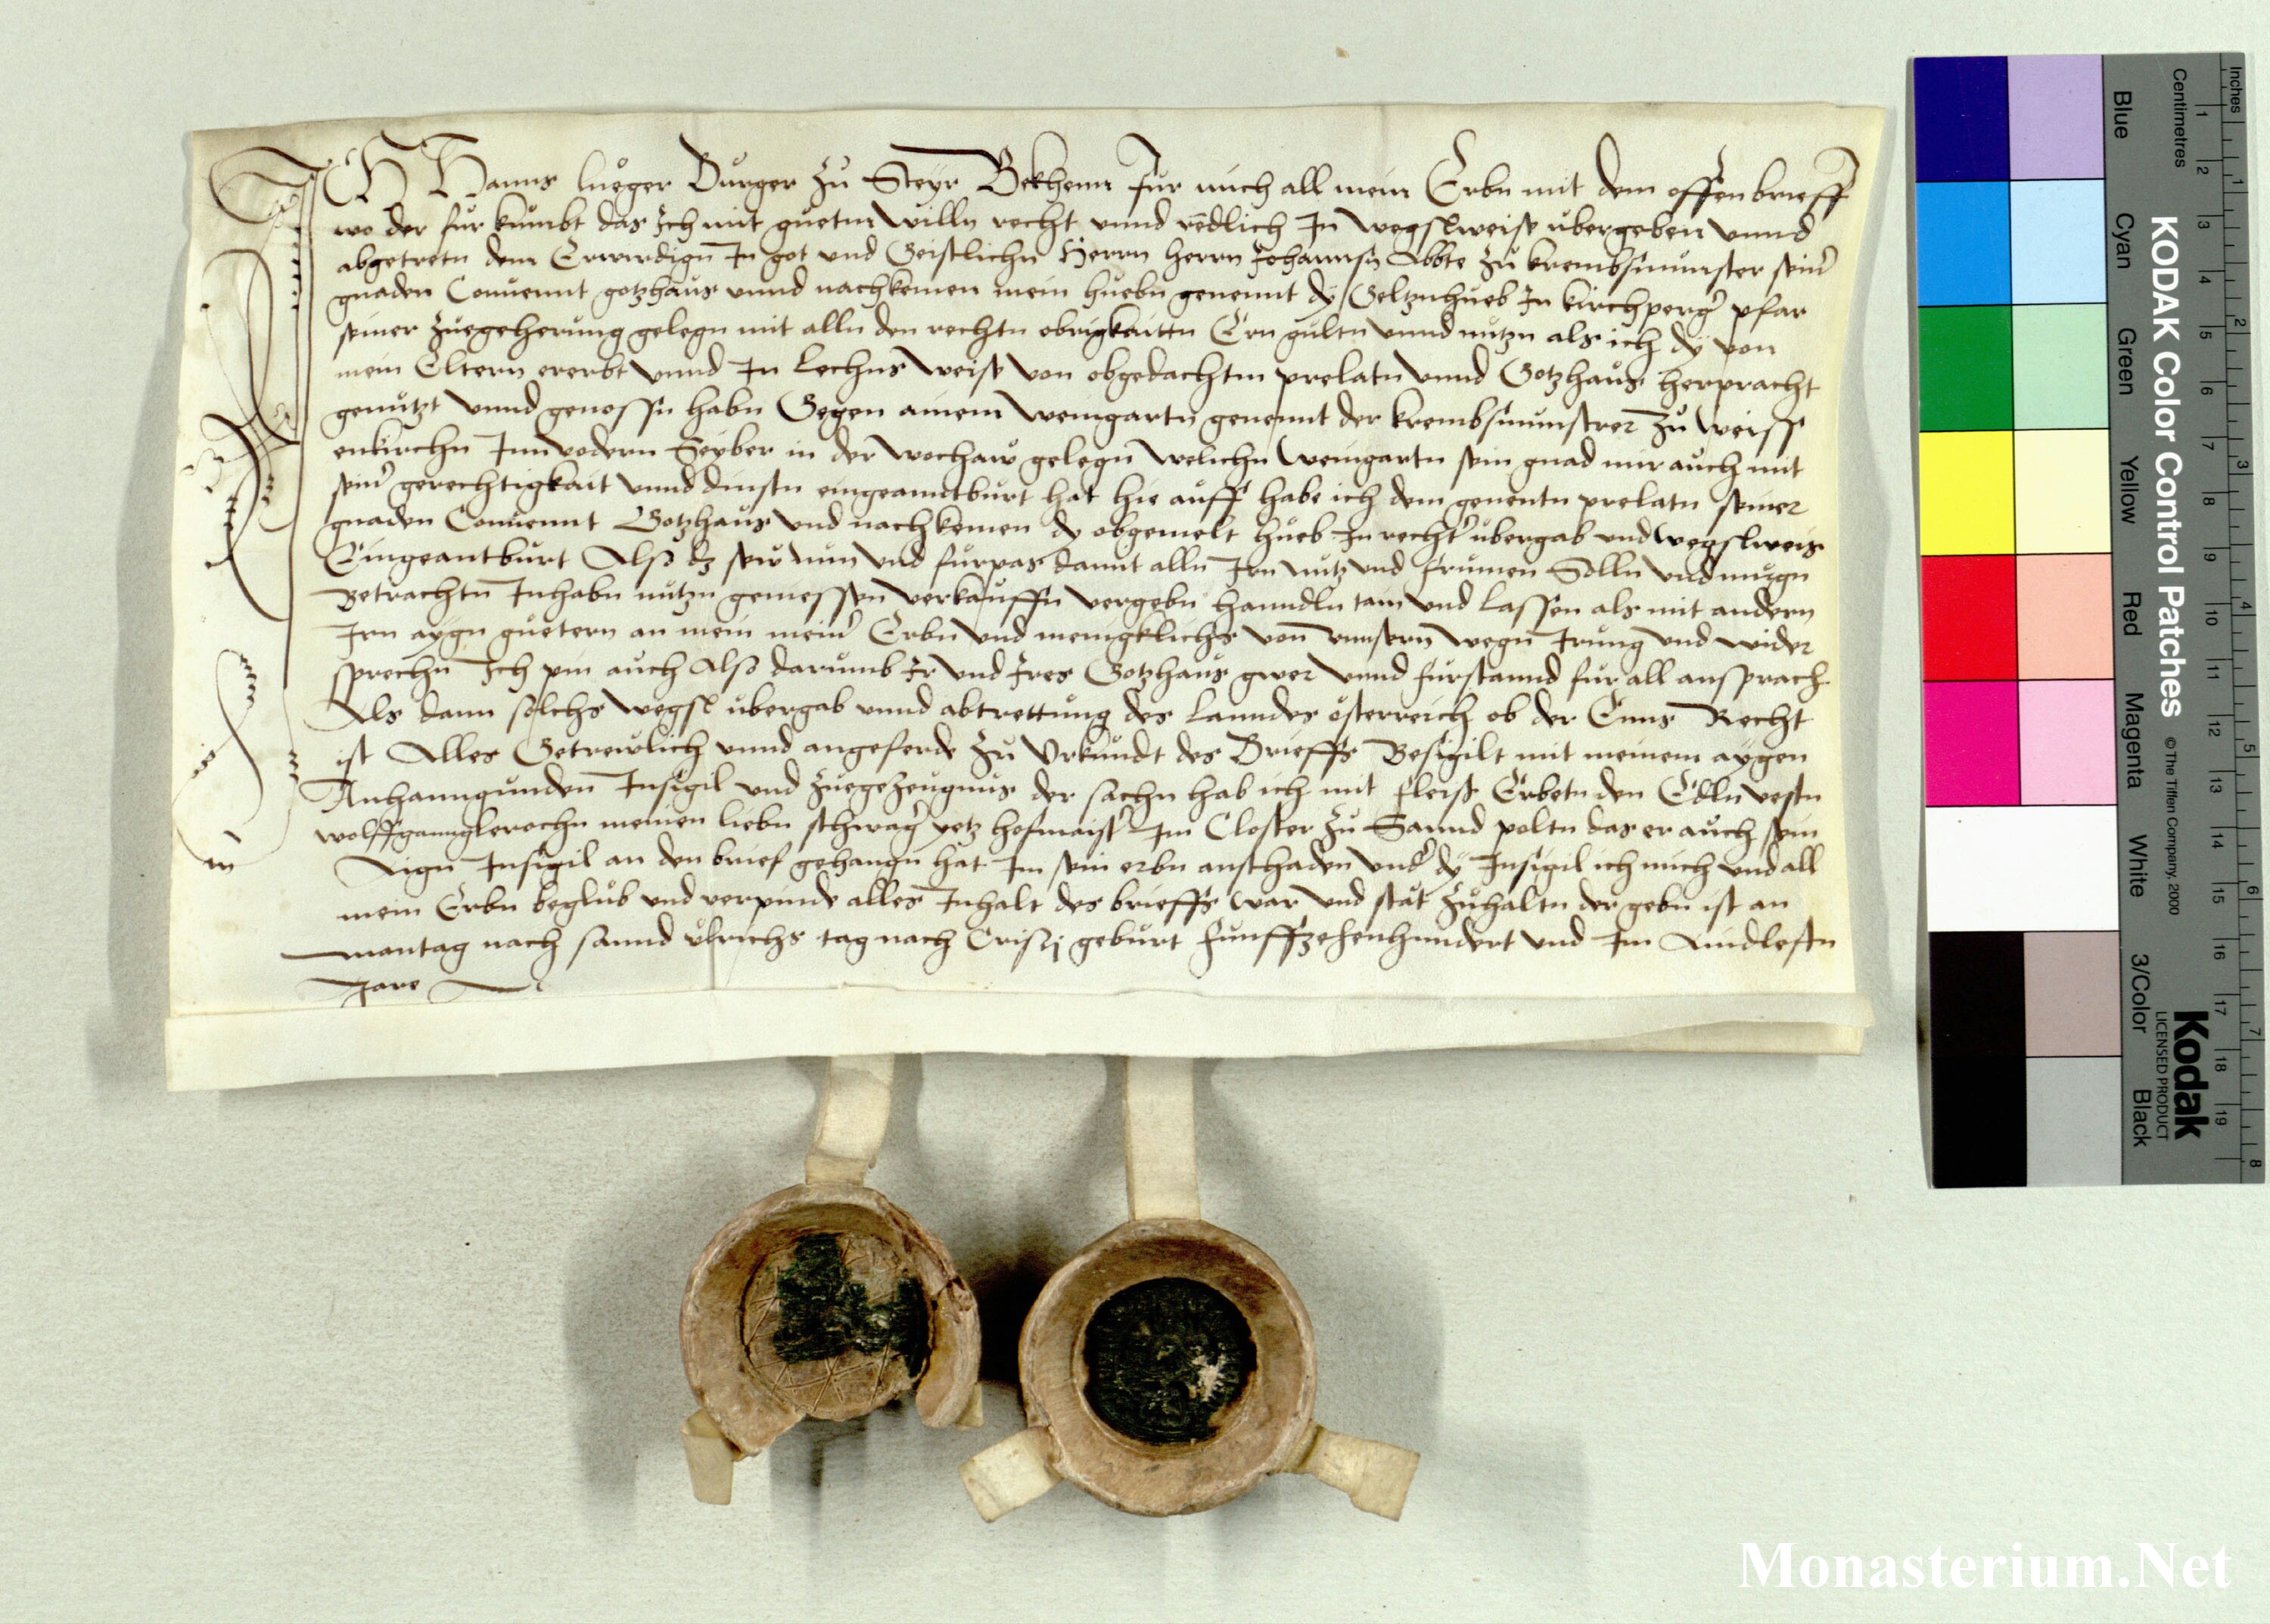 ICH Hanns lueger Burger zu Steyr Bekhenn fur mich all mein Erbn mit dem offenbrieff
wo der fur kumbt das Ich mit guetm willn recht vnnd redlich In wegslweise ubergeben vnnd
abgetretn dem Erwirdign In got vnd Geistlichn Herrn herrn Johannsn Abbte zu krembsmunster seinr
gnaden Conuennt gotzhaus vnnd nachkemen mein huebn genennt dy Geltznhueb In kirchperger pfar
seiner zuegeherung gelegn mit alln den rechtn obrigkaittn Ern gultn vnnd nutzn als ich dy von
mein Eltern ererbt vnnd In Lechns weise von obgedachtm prelatn vnnd Gotzhaus herpracht
genutzt vnnd genossn habn Gegen ainem weingartn genennt der krembsmunstrer zu weiss
enkirchn Inn vodern Seyber in der wochaw gelegn welichn weingartn sein gnad mir auch mit
seinr gerechtigkait vnnd dinstn eingeanntburt hat hie auff habe ich dem genentn prelatn seiner
gnaden Conuennt Gotzhaus vnd nachkemen dy obgemelt hueb In rechtr ubergab vnd wegslweis
Eingeantburt Also dz sew nun vnd furpas damit alln Irn nutz vnd frumen Solln vnd mugn
Betrachtn Inhabn nutzn geniessen verkauffn vergebn hanndln tain vnd lassen als mit andern
Irn aygn guetern an mein meinr Erbn vnd menigklichs von vnnsern wegn Irung vnd wider
sprechn Ich pin auch Also darumb Ir vnd Ires Gotzhaus gwer vnnd furstannd fur all ansprach
Als dann solchs wegsl ubergab vnnd abtrettung des lanndes osterreich ob der Enns Recht
ist Alles Getrewlich vnnd angeferde zu Urkundt des Brieffs Besigilt mit meinem aygen
Anhanngunden Insigil vnd zuegezeugnus der sachn hab ich mit fleiss Erbetn den Edln vestn
wolffganng lerochn meinen liebn schwagr yetz hofmaistr Im Closter zu Sannd poltn das er auch sein
Aign Insigil an den brief gehangn hat Im sein erbn anschaden vndr dy Insigil ich mich vnd all
mein Erbn beglub vnd verpinde alles Inhalt des brieffs war vnd stat zuhaltn der gebn ist an
montag nach sannd ulrichs tag nach Cristj geburt funffzehenhundert vnd Im Aindleftn
Jare
KODAK Color Control Patches © The Tiffen Company, 2000
Kodak
LICENSED PRODUCT
Inches 1 2 3 4 5 6 7 8
Centimetres 1 2 3 4 5 6 7 8 9 10 11 12 13 14 15 16 17 18 19
Blue Cyan Green Yellow Red Magenta White 3/Color Black
Monasterium.Net